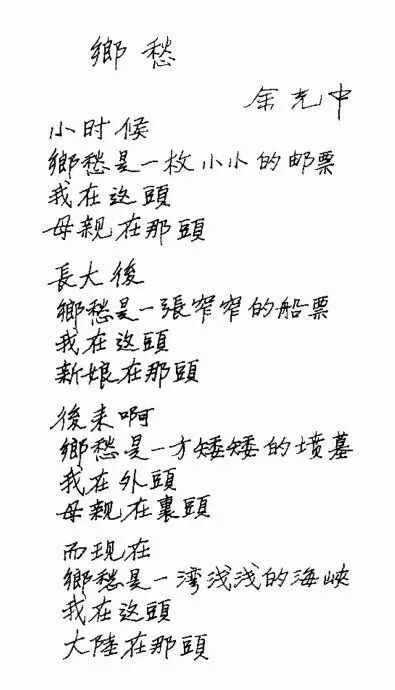 鄉愁
余光中
小时候
鄉愁是一枚小小的邮票
我在这頭
母親在那頭
長大後
鄉愁是一張窄窄的船票
我在这頭
新娘在那頭
後来啊
鄉愁是一方矮矮的墳墓
我在外頭
母親在裏頭
而现在
鄉愁是一湾浅浅的海峽
我在这頭
大陸在那頭